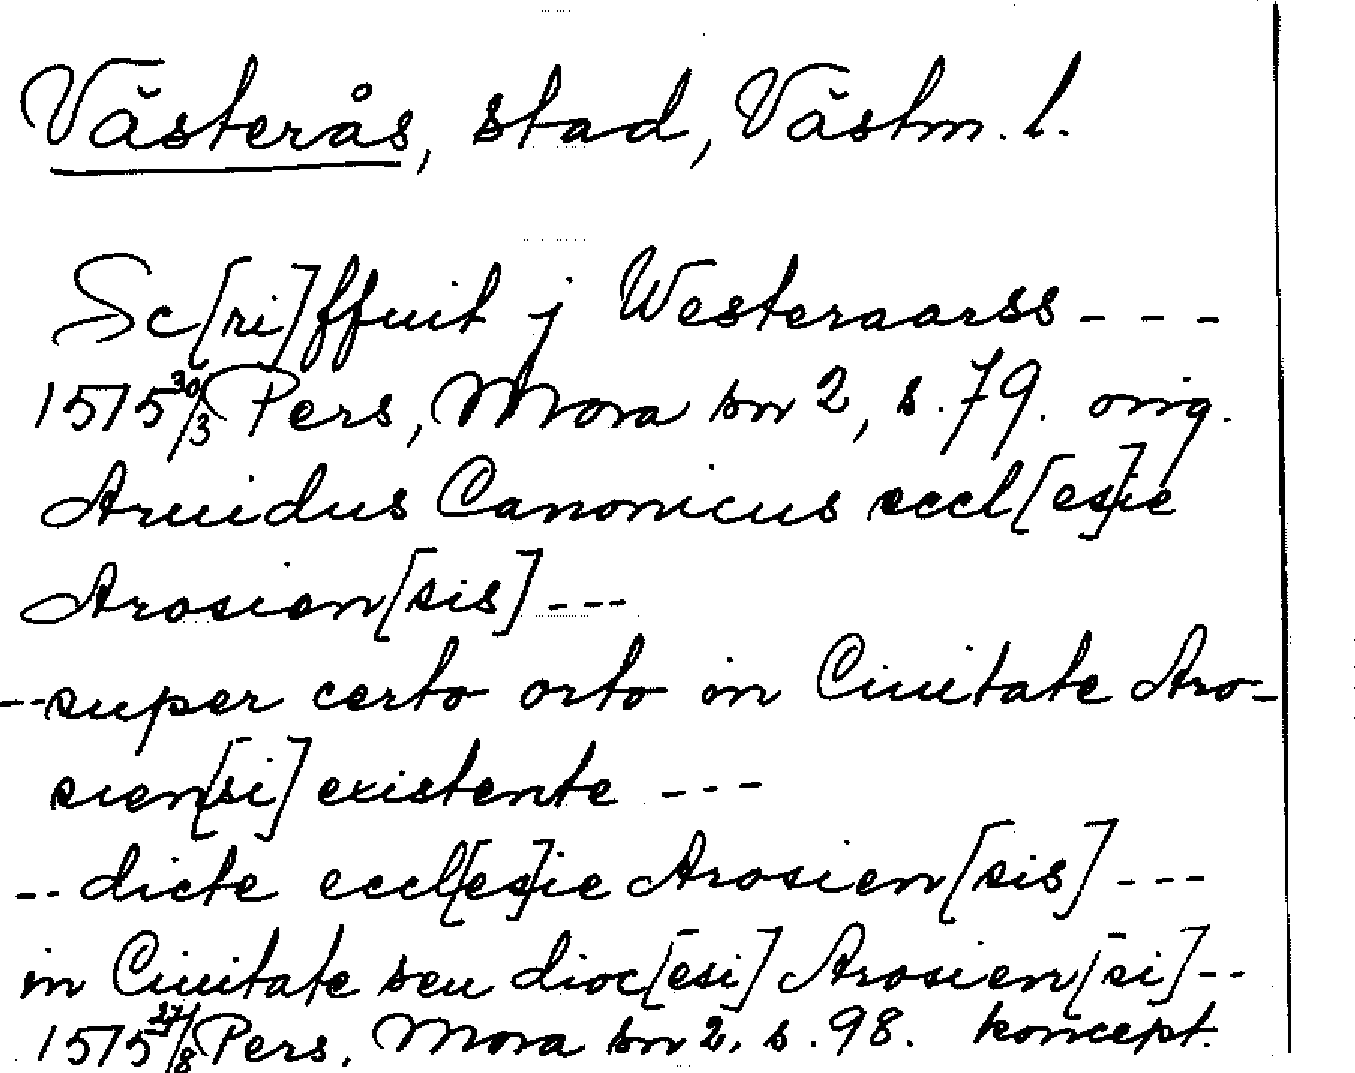 Västerås, stad, Västm. l.
Sc[ri]ffuit j Westeraarss - - -
1575 30/3 Pers, Mora bm 2, s. 79. orig.
Aruidus Canonicus eccl[es]ie
Arosien[sis] - - -
-- super certo orto in Ciuitate Aro-
sien[si] existente - - -
-- dicte eccl[es]ie Arosien[sis] - - -
in Ciuitate seu dioc[esi] Arosien[si] - -
1575 27/8 Pers. Mora bm 2, s. 98. koncept.